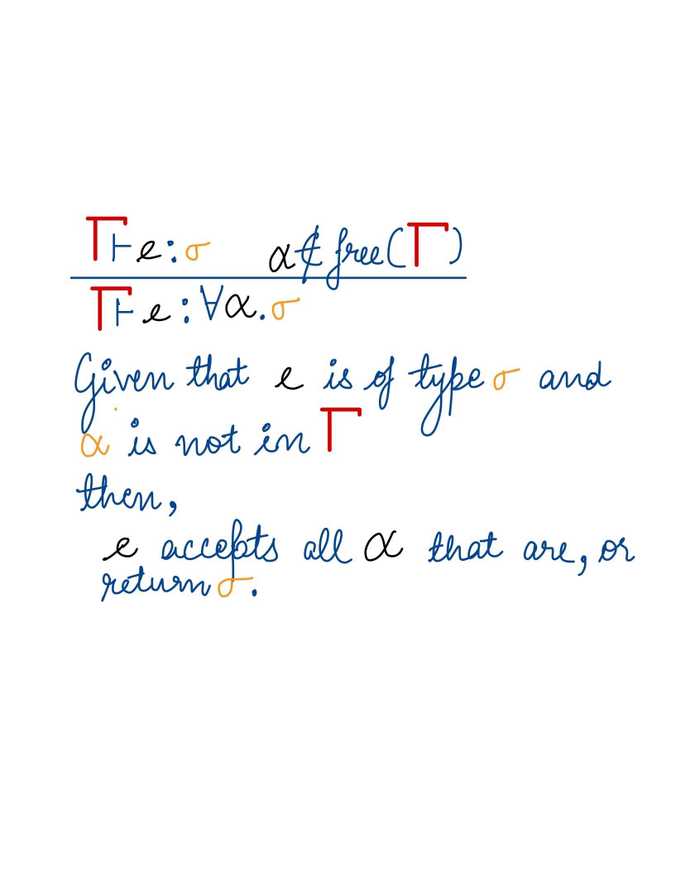 Γ⊢e:σ α∉free(Γ)
Γ⊢e:∀α.σ
Given that e is of type σ and
α is not in Γ
then,
e accepts all α that are, or
return σ.